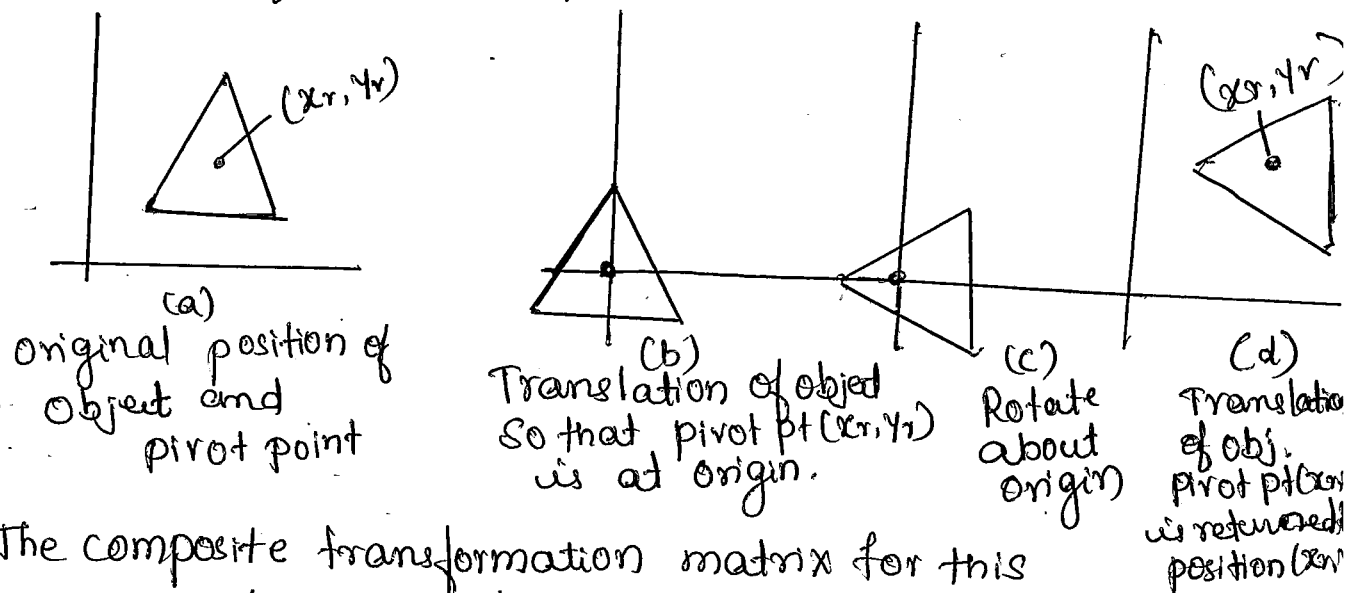 (xr, yr)
(xr, yr)
(a)
original position of
object and
pivot point
(b)
Translation of object
so that pivot pt (xr, yr)
is at origin.
(c)
Rotate
about
origin
(d)
Translatio
of obj.
pivot pt (xr
is returned
position (xr
The composite transformation matrix for this